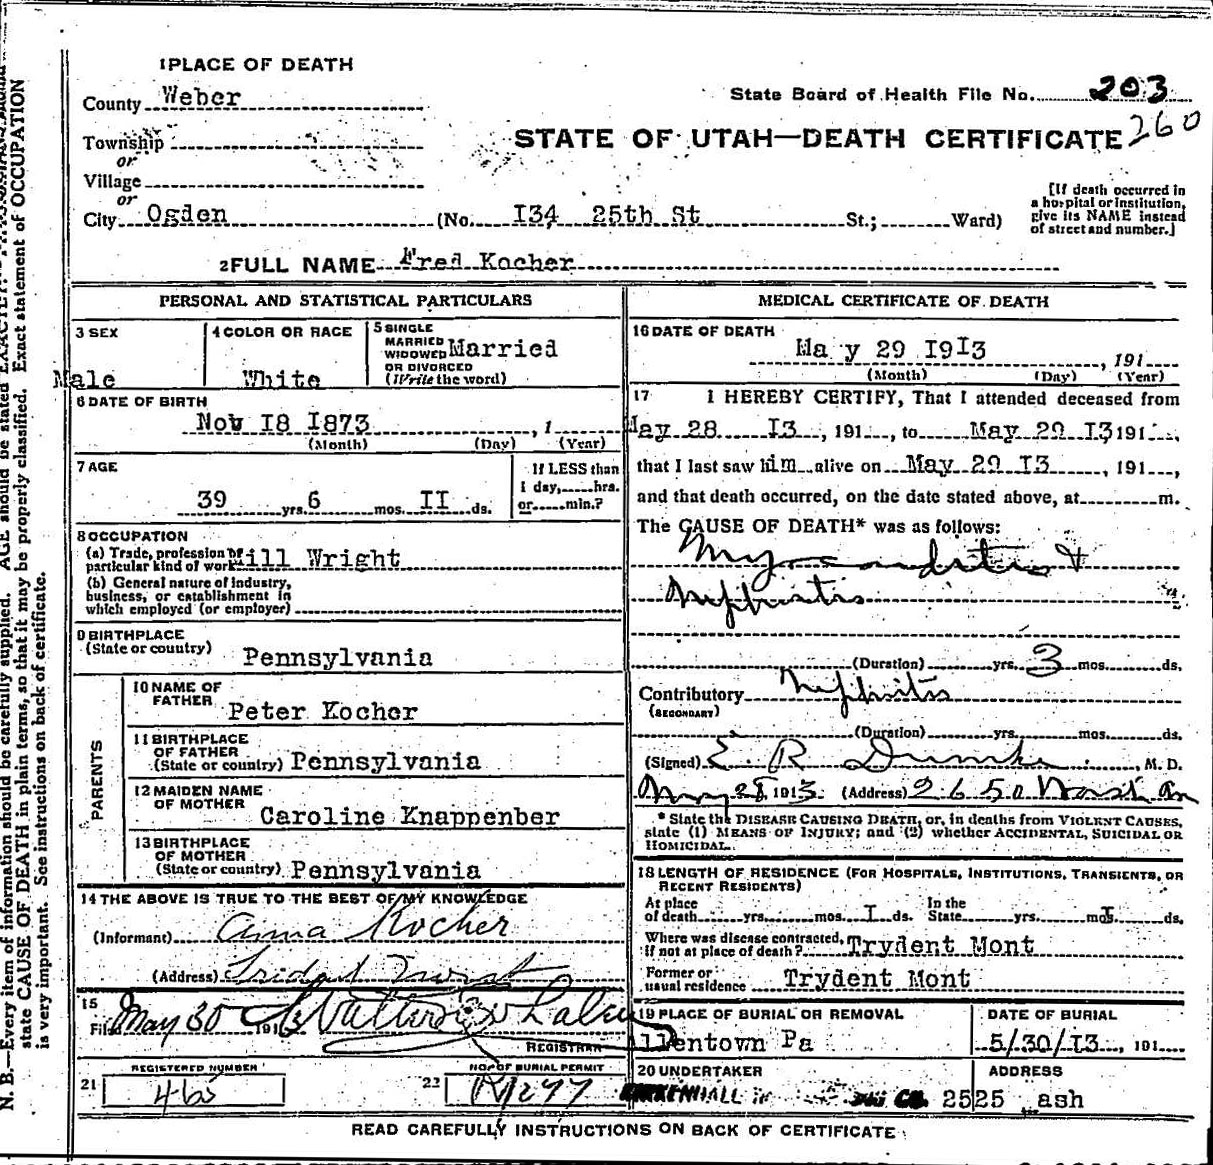 1 PLACE OF DEATH
County Weber
State Board of Health File No. 203
Township
or
STATE OF UTAH—DEATH CERTIFICATE 260
Village
or
City Ogden (No. I34 25th St St.; Ward)
[If death occurred in a hospital or institution, give its NAME instead of street and number.]
2 FULL NAME Fred Kocher
PERSONAL AND STATISTICAL PARTICULARS
3 SEX
Male
4 COLOR OR RACE
White
5 SINGLE
MARRIED
WIDOWED
OR DIVORCED
(Write the word)
Married
6 DATE OF BIRTH
Nov I8 I873 , 1
(Month) (Day) (Year)
7 AGE
39 yrs. 6 mos. II ds.
If LESS than
1 day, hrs.
or min.?
8 OCCUPATION
(a) Trade, profession or
particular kind of work Mill Wright
(b) General nature of industry,
business, or establishment in
which employed (or employer)
9 BIRTHPLACE
(State or country)
Pennsylvania
PARENTS
10 NAME OF
FATHER
Peter Kocher
11 BIRTHPLACE
OF FATHER
(State or country) Pennsylvania
12 MAIDEN NAME
OF MOTHER
Caroline Knappenber
13 BIRTHPLACE
OF MOTHER
(State or country) Pennsylvania
14 THE ABOVE IS TRUE TO THE BEST OF MY KNOWLEDGE
(Informant) Anna Kocher
(Address)
15
Filed May 30 191
REGISTRAR
REGISTERED NUMBER
21
NO. OF BURIAL PERMIT
22
MEDICAL CERTIFICATE OF DEATH
16 DATE OF DEATH
Ma y 29 I9I3 , 191
(Month) (Day) (Year)
17 I HEREBY CERTIFY, That I attended deceased from
May 28 I3 , 191 , to May 29 I3 191 ,
that I last saw him alive on May 29 I3 , 191 ,
and that death occurred, on the date stated above, at m.
The CAUSE OF DEATH* was as follows:
&
Nephritis
(Duration) yrs. 3 mos. ds.
Contributory Nephritis
(SECONDARY)
(Duration) yrs. mos. ds.
(Signed) E. R. Dumke M. D.
May 28, 1913 (Address) 2650 Wash
* State the DISEASE CAUSING DEATH, or, in deaths from VIOLENT CAUSES,
state (1) MEANS OF INJURY; and (2) whether ACCIDENTAL, SUICIDAL OR
HOMICIDAL.
18 LENGTH OF RESIDENCE (FOR HOSPITALS, INSTITUTIONS, TRANSIENTS, OR
RECENT RESIDENTS)
At place
of death yrs. mos. I ds.
In the
State yrs. mos. ds.
Where was disease contracted,
if not at place of death? Trydent Mont
Former or
usual residence Trydent Mont
19 PLACE OF BURIAL OR REMOVAL
llentown Pa
DATE OF BURIAL
5/30/I3 , 191
20 UNDERTAKER
ADDRESS
2525 ash
READ CAREFULLY INSTRUCTIONS ON BACK OF CERTIFICATE
N. B.—Every item of information should be carefully supplied. AGE should be stated EXACTLY.
state CAUSE OF DEATH in plain terms, so that it may be properly classified. Exact statement of OCCUPATION
is very important. See instructions on back of certificate.